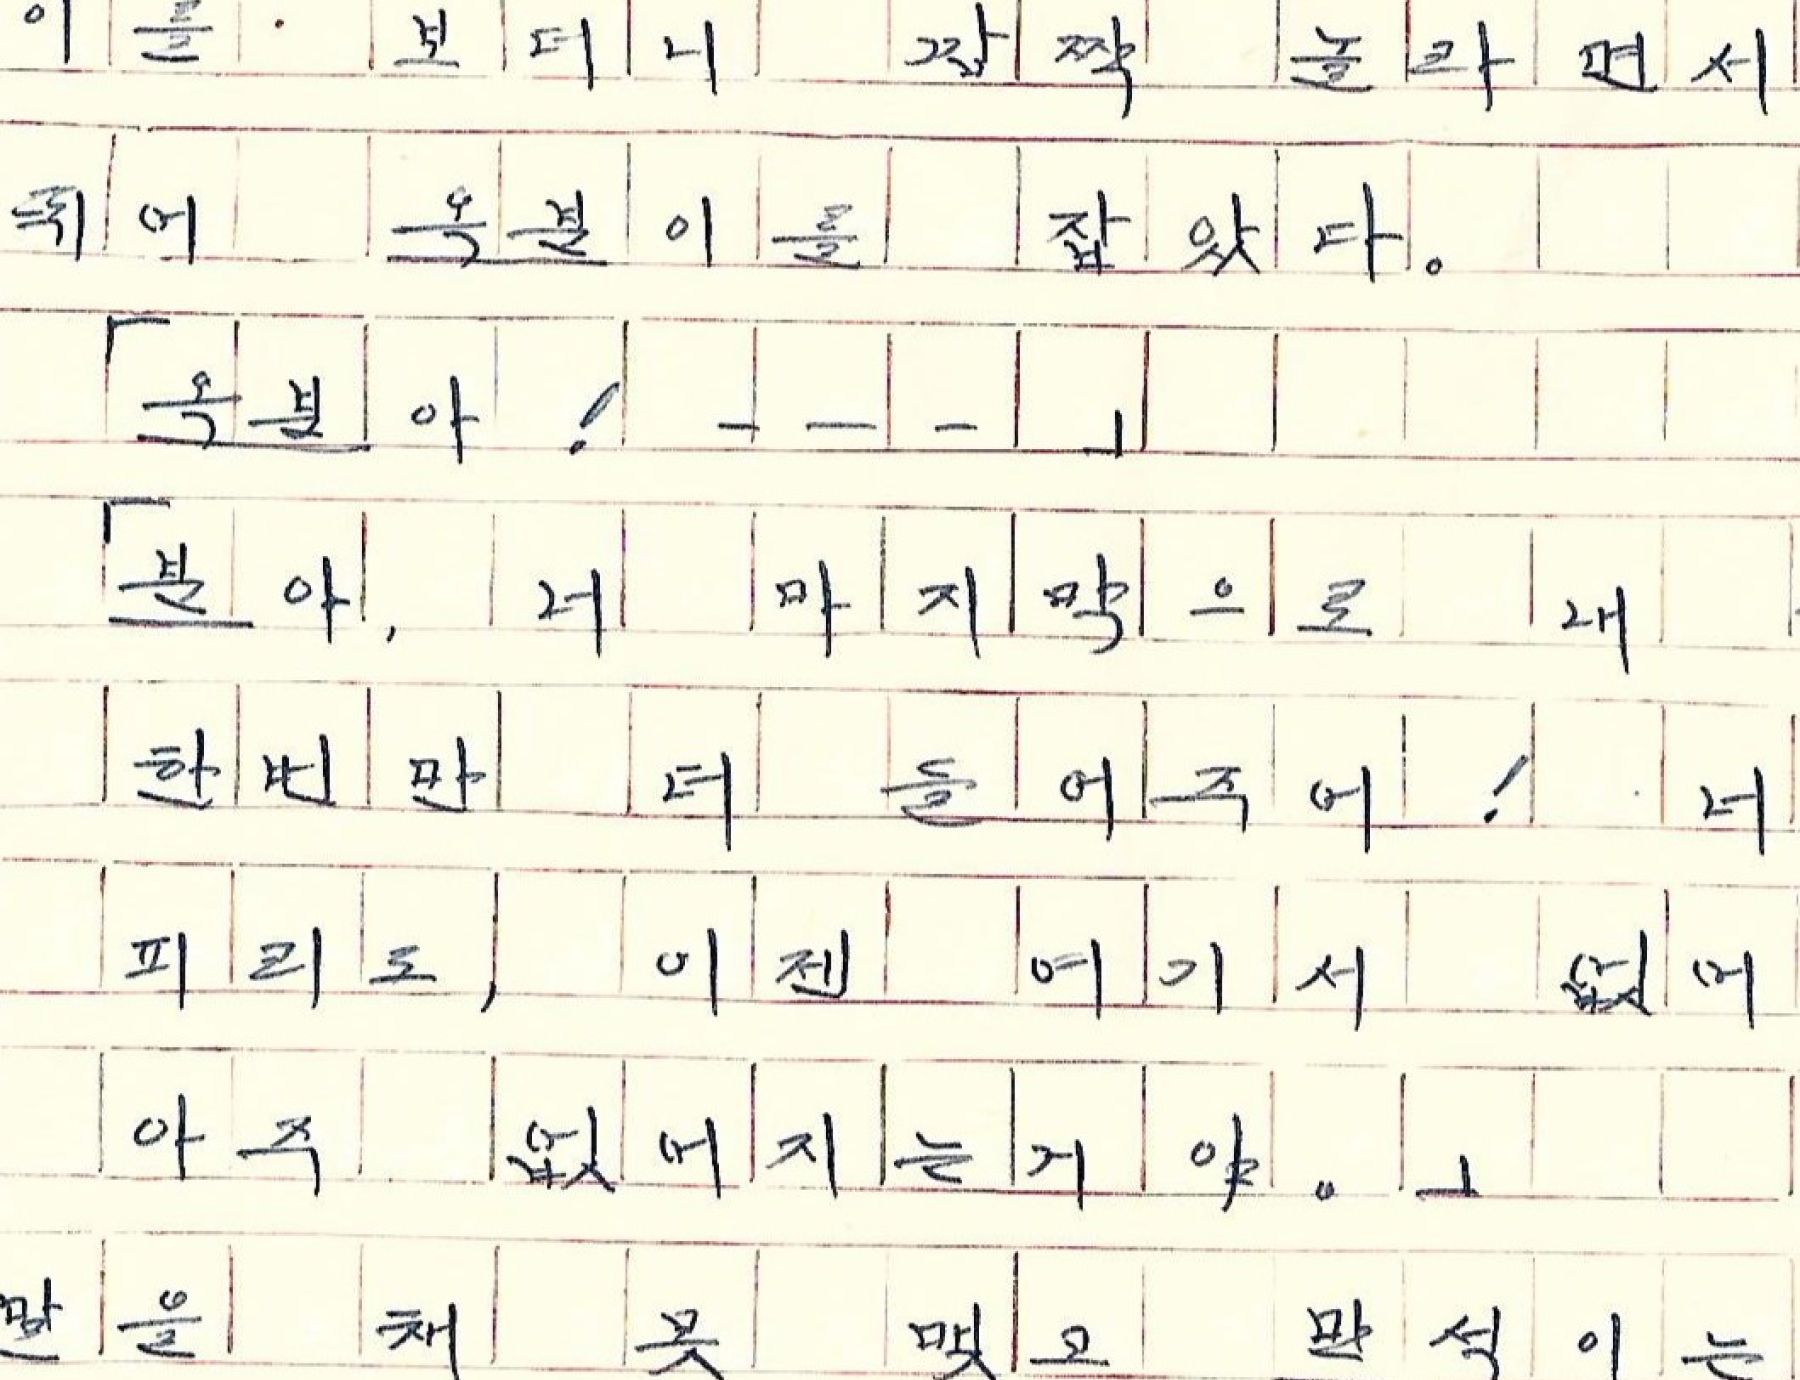 이를 보더니 깜짝 놀라면서
뛰어 옥분이를 잡았다.
「옥분아! ― ― ― 」
「분아, 너 마지막으로 내
한번만 더 들어주어! 너
피리도, 이젠 여기서 없어
아주 없어지는거야.」
말을 채 못 맺고 만석이는